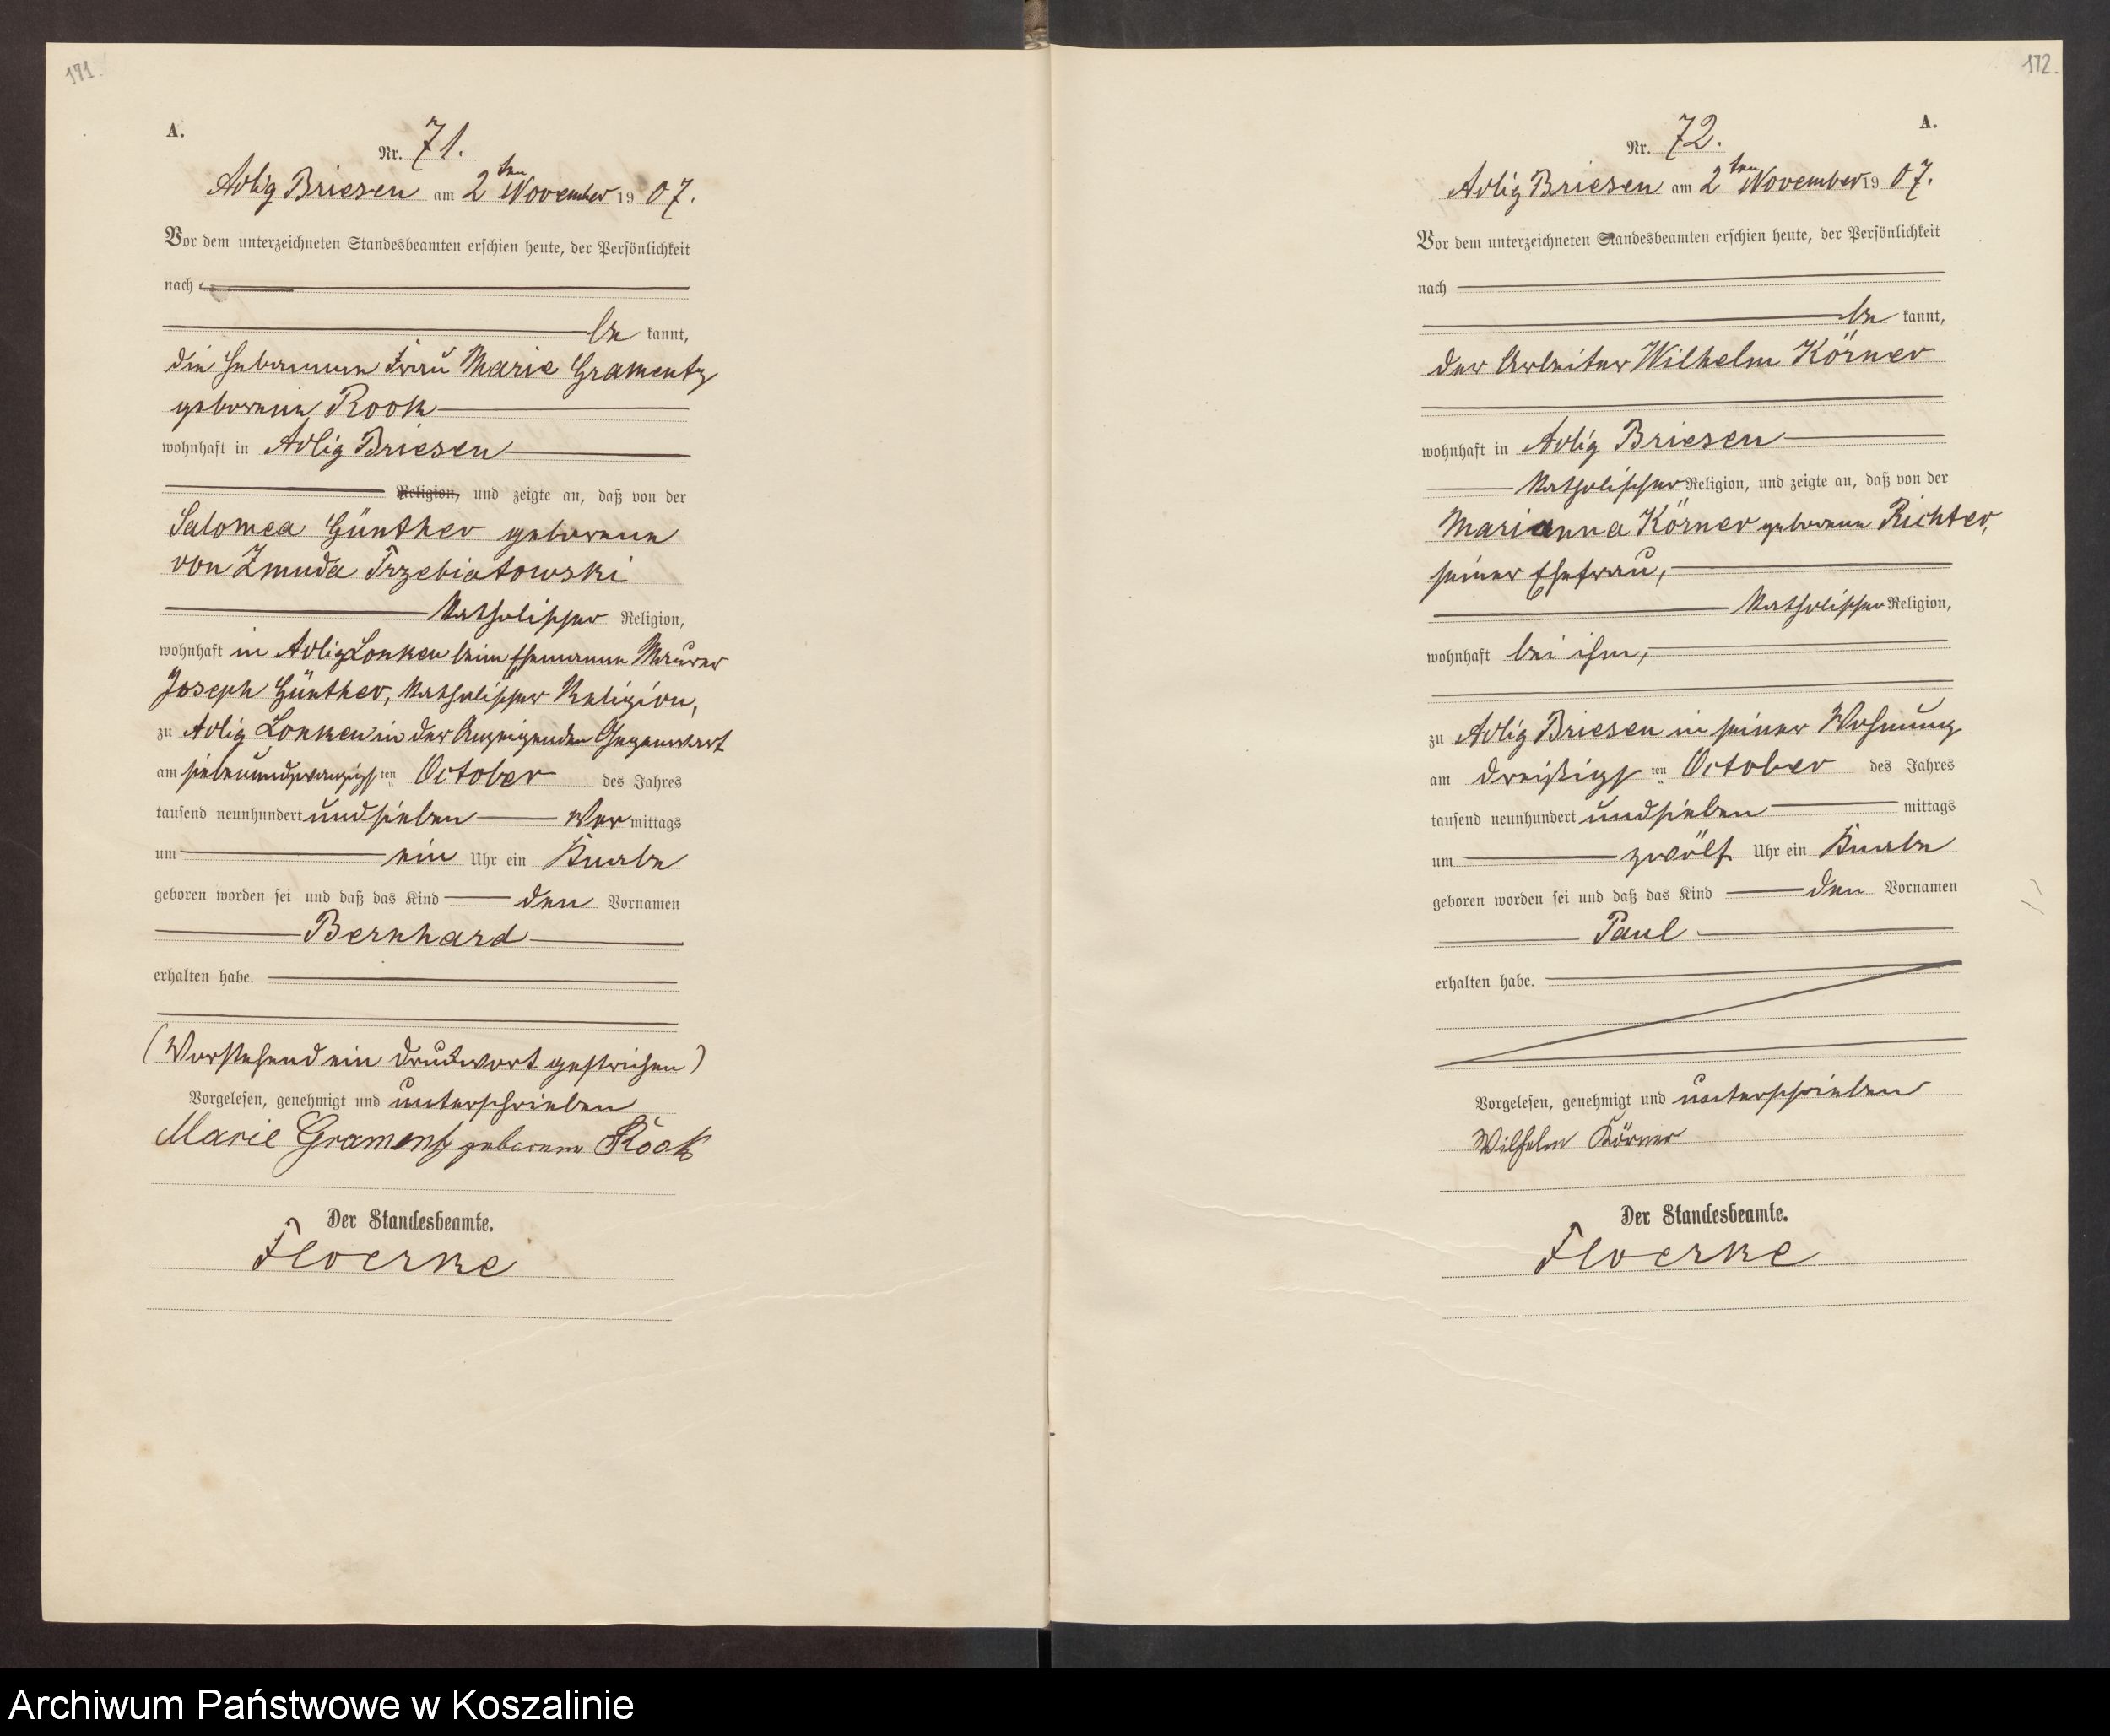 171.
A.
Nr. 71.
Adlig Briesen am 2ten November 1907.
Vor dem unterzeichneten Standesbeamten erschien heute, der Persönlichkeit
nach
be kannt,
die Hebamme Frau Marie Gramentz
geborene Rook
wohnhaft in Adlig Briesen
Religion, und zeigte an, daß von der
Salomea Günther geborene
von Zmuda Trzebiatowski
katholischer Religion,
wohnhaft in Adlig Lonken beim Ehemanne Maurer
Joseph Günther, katholischer Religion,
zu Adlig Lonken in der Anzeigenden Gegenwart
am siebenundzwanzigsten October des Jahres
tausend neunhundert und sieben Vor mittags
um ein Uhr ein Knabe
geboren worden sei und daß das Kind den Vornamen
Bernhard
erhalten habe.
(Vorstehend ein Druckwort gestrichen)
Vorgelesen, genehmigt und unterschrieben
Marie Gramentz geborene Rook
Der Standesbeamte.
Floerke
172.
A.
Nr. 72.
Adlig Briesen am 2ten November 1907.
Vor dem unterzeichneten Standesbeamten erschien heute, der Persönlichkeit
nach
be kannt,
der Arbeiter Wilhelm Körner
wohnhaft in Adlig Briesen
katholischer Religion, und zeigte an, daß von der
Marianna Körner geborene Richter,
seiner Ehefrau,
katholischer Religion,
wohnhaft bei ihm,
zu Adlig Briesen in seiner Wohnung
am dreißigsten October des Jahres
tausend neunhundert und sieben mittags
um zwölf Uhr ein Knabe
geboren worden sei und daß das Kind den Vornamen
Paul
erhalten habe.
Vorgelesen, genehmigt und unterschrieben
Wilhelm Körner
Der Standesbeamte.
Floerke
Archiwum Państwowe w Koszalinie